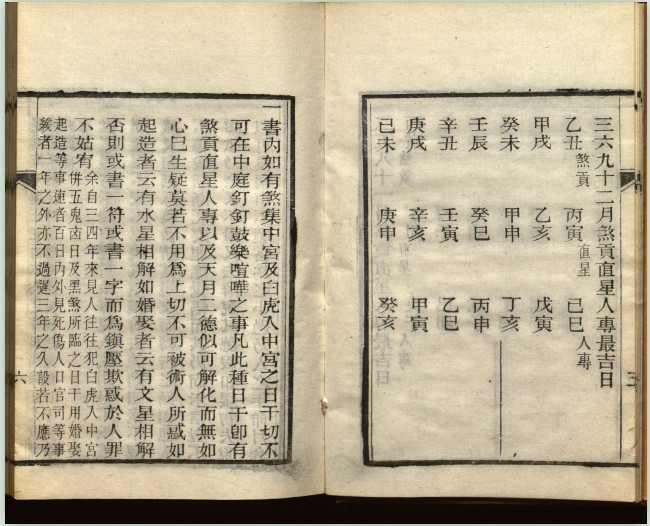 三六九十二月煞貢直星人專最吉日
乙丑煞貢 丙寅直星 己巳人專
甲戌 乙亥 戊寅
癸未 甲申 丁亥
壬辰 癸巳 丙申
辛丑 壬寅 乙巳
庚戌 辛亥 甲寅
己未 庚申 癸亥
三
一書內如有煞集中宮及白虎入中宮之日干切不
可在中庭釘釘鼓樂喧嘩之事凡此種日干卽有
煞貢直星人專以及天月二德似可解化而無如
心已生疑莫若不用爲上切不可被術人所惑如
起造者云有水星相解如婚娶者云有文星相解
否則或書一符或書一字而爲鎭壓欺惑於人罪
不姑宥余自三四年來見人往往犯白虎入中宮
併五鬼凶日及黑煞所臨之日干用婚娶
起造等事速者百日內外見死傷人口官司等事
緩者一年之外亦不過遲三年之久設若不應乃
六